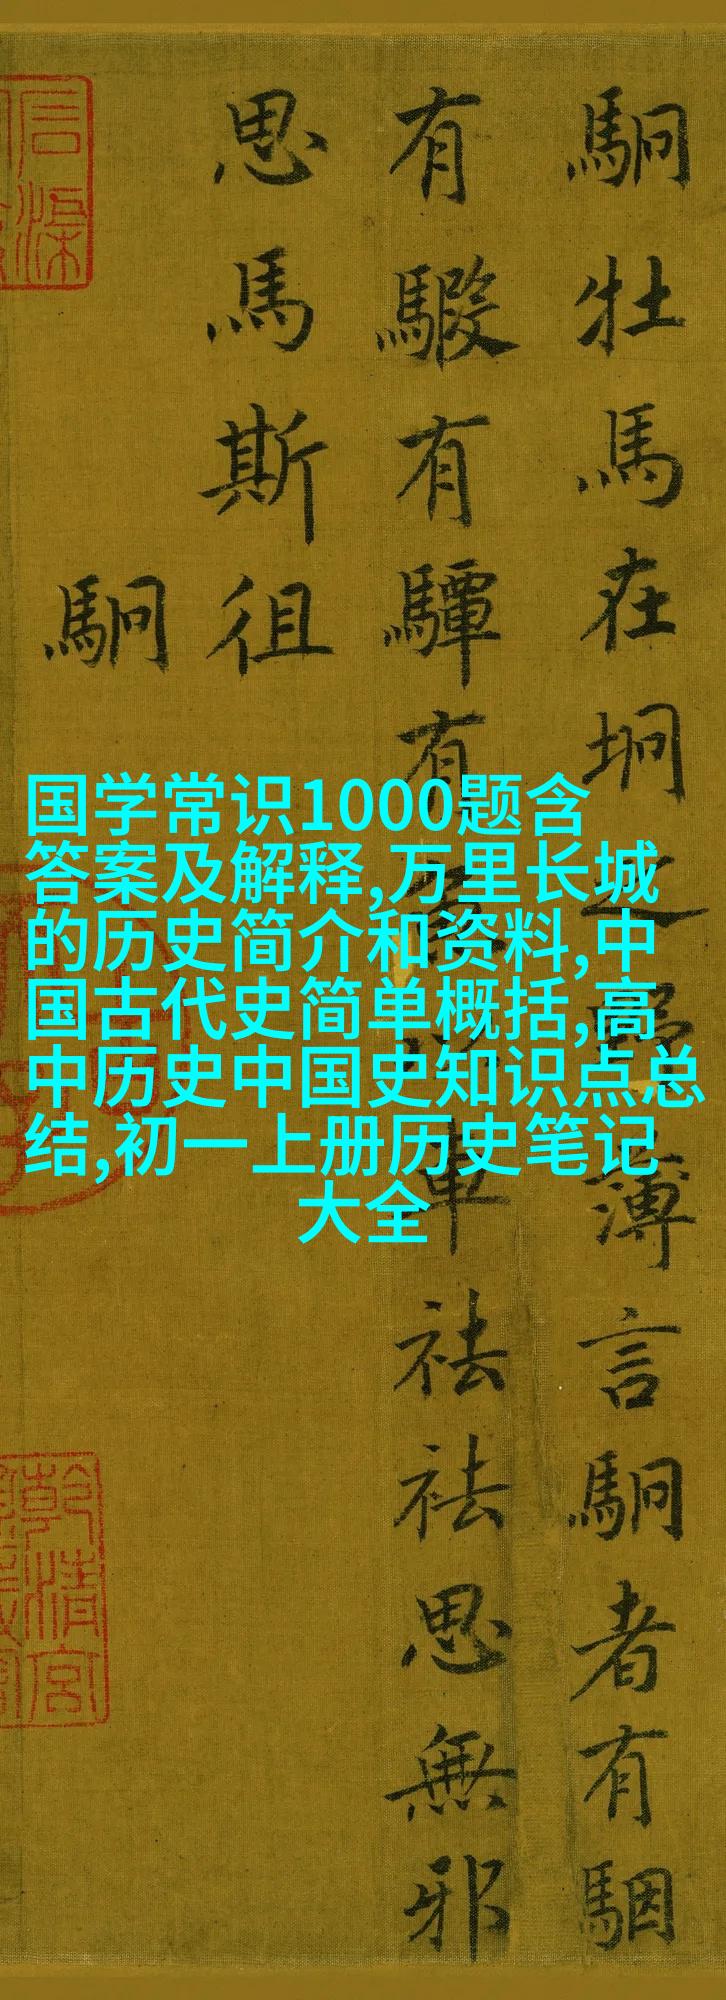 駉牡馬在坰之野薄言駉者有駰
有騢有驔有魚以車祛祛思無邪
思馬斯徂
駉
国学常识1000题含
答案及解释,万里长城
的历史简介和资料,中
国古代史简单概括,高
中历史中国史知识点总
结,初一上册历史笔记
大全
乾清宮